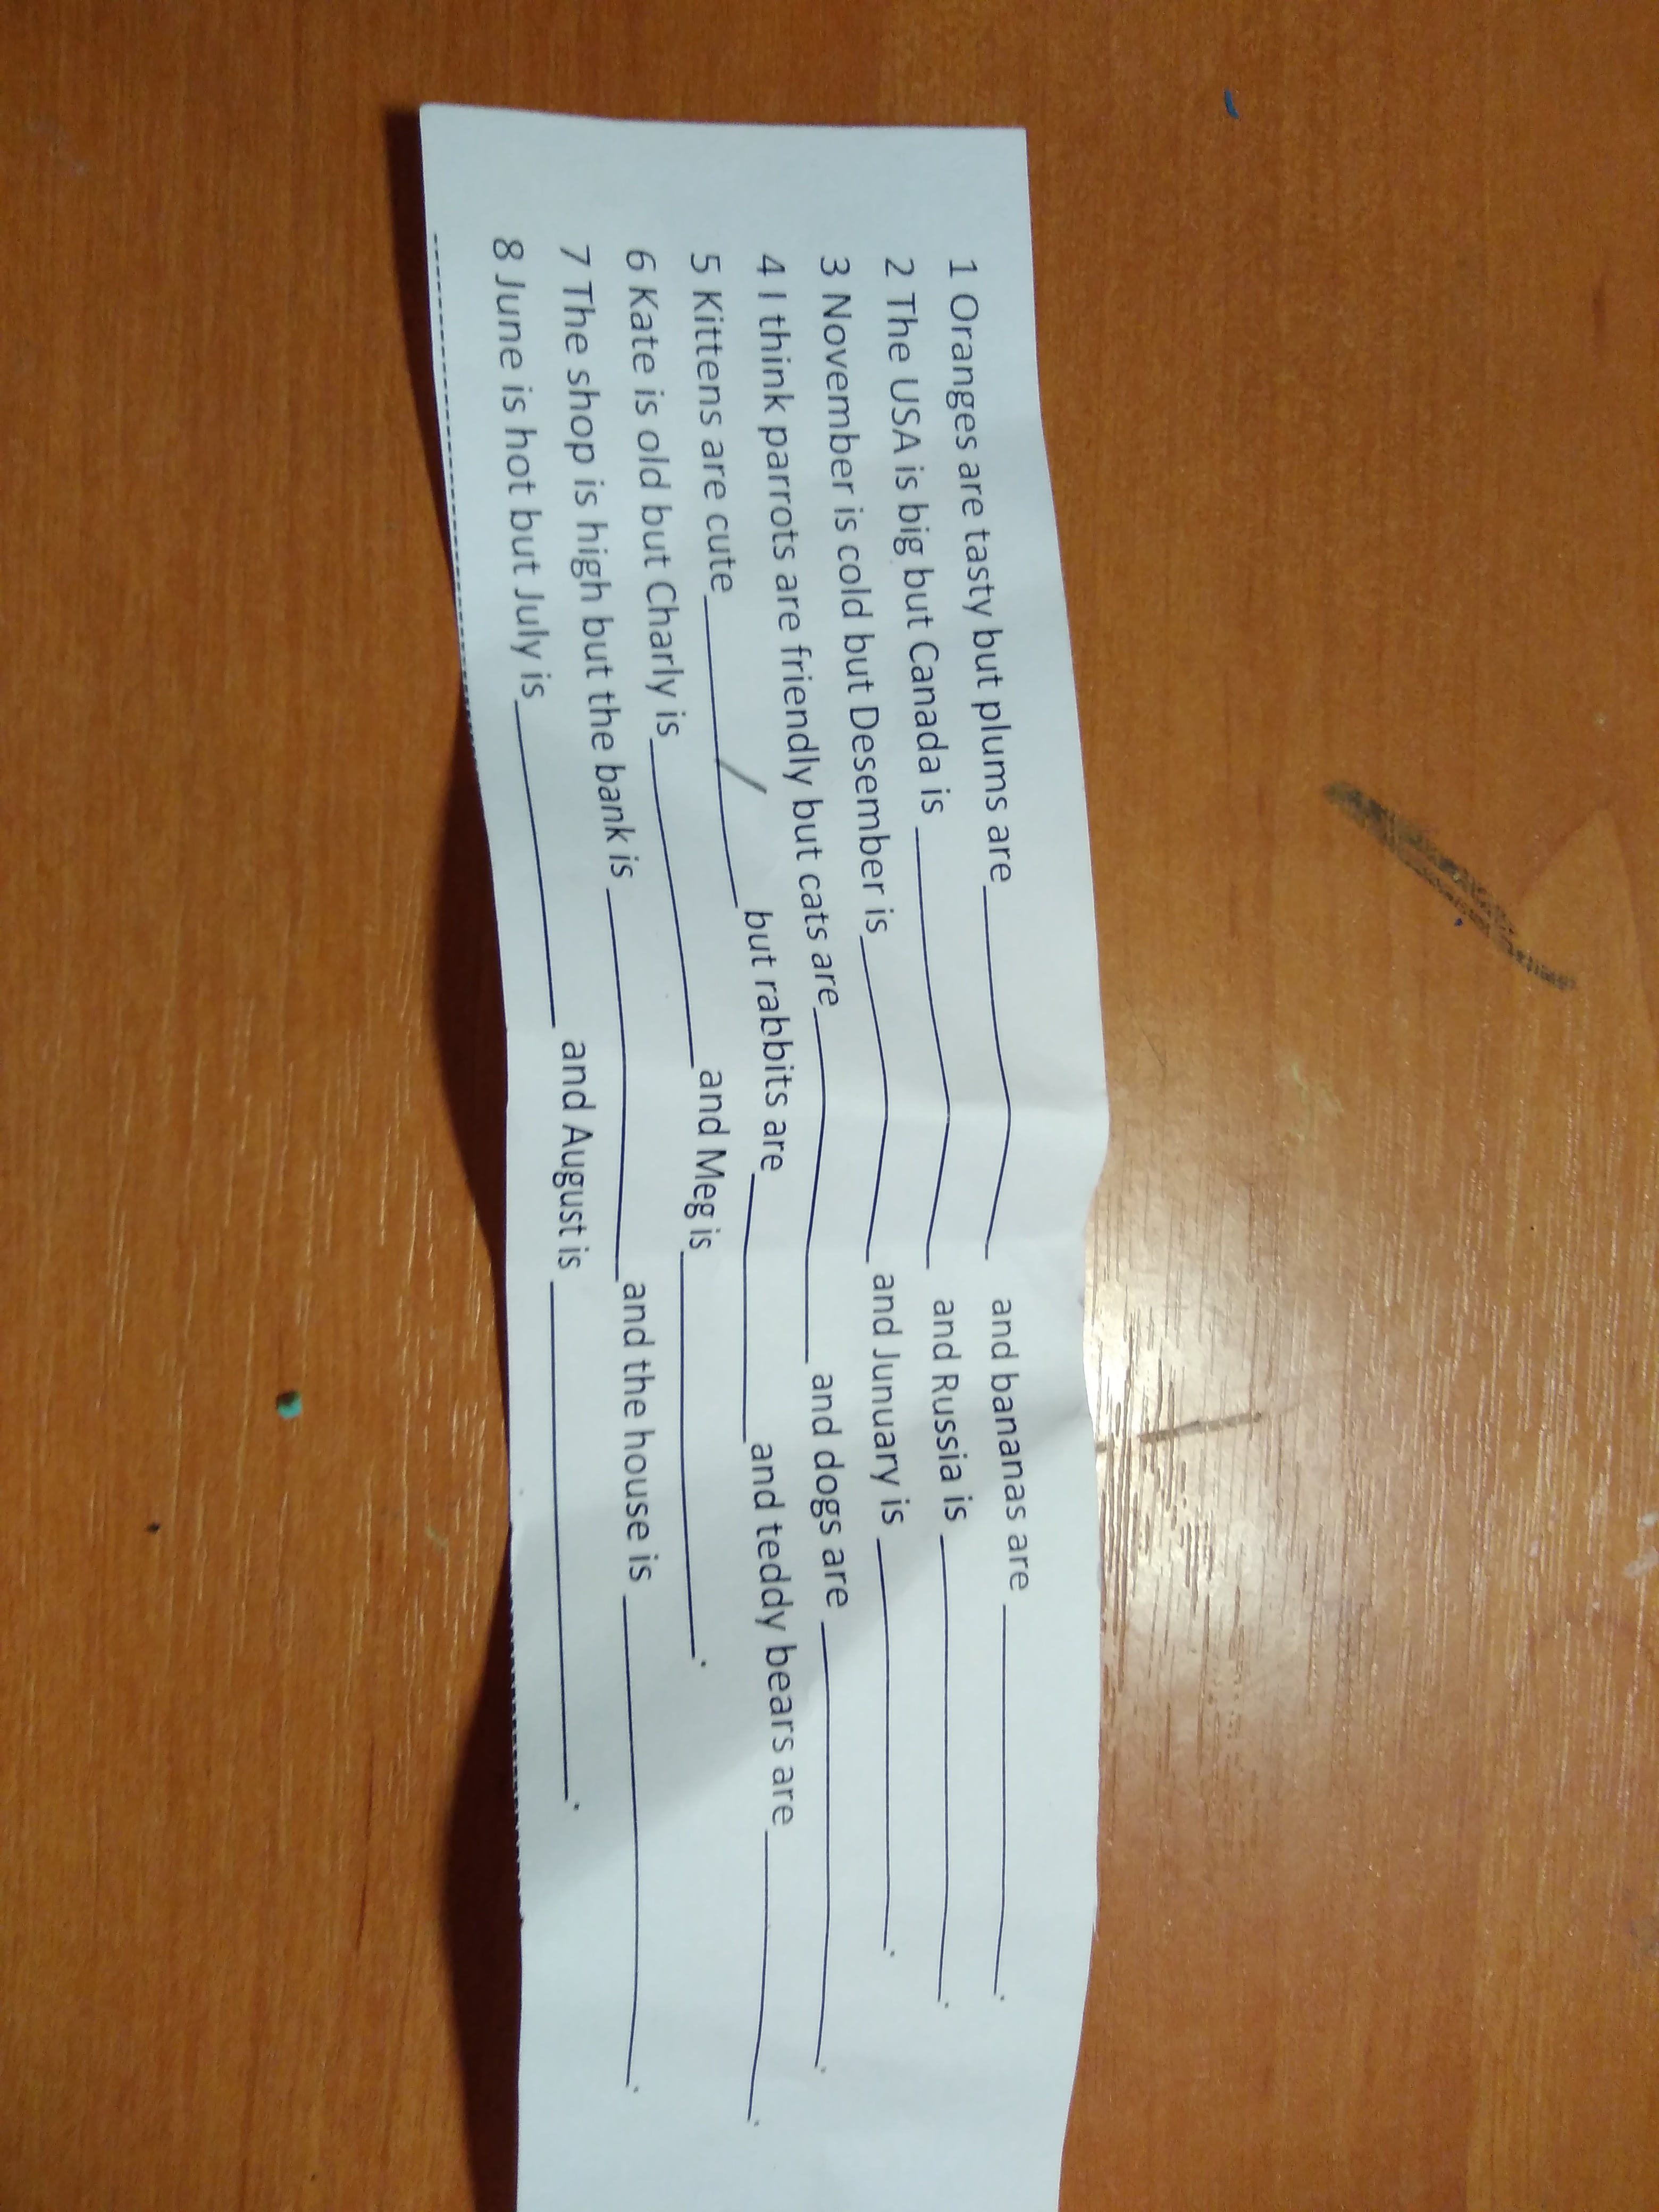 1 Oranges are tasty but plums are__________ and bananas are __________.
2 The USA is big but Canada is __________ and Russia is __________.
3 November is cold but Desember is__________ and Junuary is __________.
4 I think parrots are friendly but cats are__________ and dogs are __________.
5 Kittens are cute__________but rabbits are__________and teddy bears are__________.
6 Kate is old but Charly is__________and Meg is__________.
7 The shop is high but the bank is __________and the house is __________.
8 June is hot but July is__________ and August is __________.